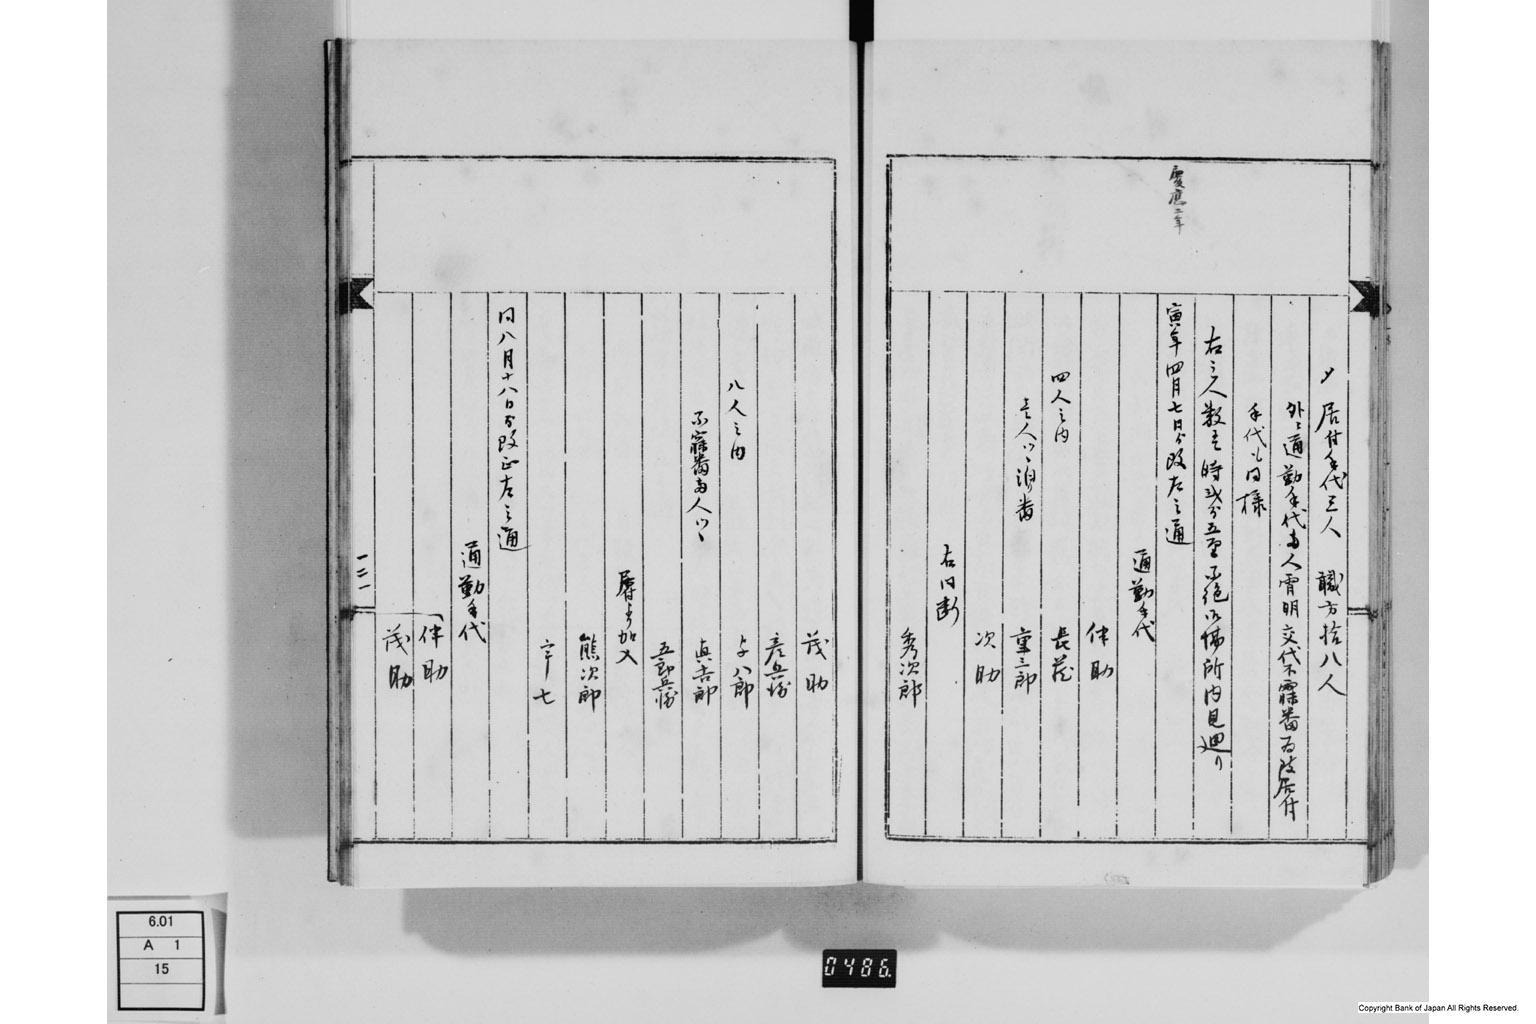 慶應二年
夕 居付手代三人 職方拾八人
外ニ通勤手代両人宵明交代不寐番為致居付
手代も同様
右之人数
時
五
不絶
場所内見廻り
寅年四月七日ゟ改左之通
通勤手代
伴助
四人之内
長蔵
壱人ツヽ泊番
重三郎
次助
右同断
秀次郎
茂助
彦兵衛
八人之内
与八郎
不寐番両人ツヽ
真吉郎
五郎兵衛
暦ゟ加入
熊次郎
宇七
同八月十八日ゟ改正左之通
通勤手代
伴助
茂助
一二一
0486
6.01
A 1
15
Copyright Bank of Japan All Rights Reserved.